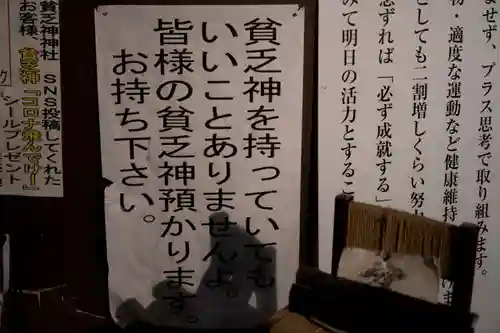 ませず、プラス思考で取り組みます。
・適度な運動など健康維持
としても二割増しくらい努
念ずれば「必ず成就する」
みて明日の活力とするこ
貧乏神を持っていても
いいことありませんよ。
皆様の貧乏神預かります。
お持ち下さい。
貧乏神神社 SNS投稿してくれた
お客様、貧乏神『コロナ飛んでけー』
シールプレゼント